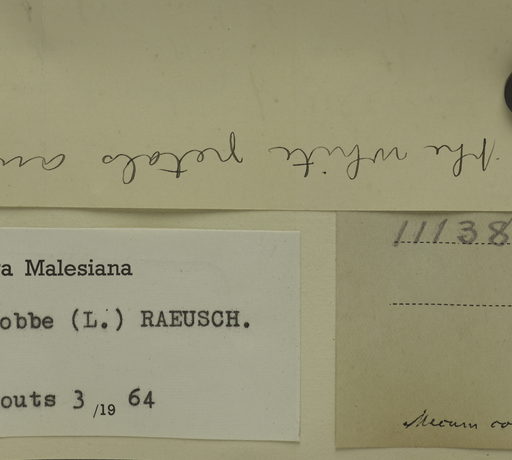 the white petals an
a Malesiana
obbe (L.) RAEUSCH.
outs 3/19 64
11138
Mecum co